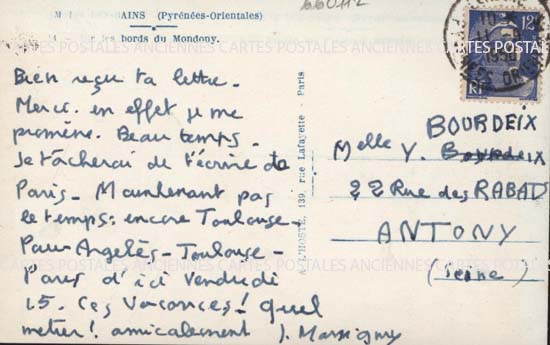 AINS (Pyrénées-Orientales)
les bords du Mondony.
66042
Bien reçu ta lettre.
Merci. en effet je me
promène. Beau temps.
Je tâcherai de t'écrire de
Paris. Maintenant pas
le temps: encore Toulouse-
Pau-Angelès-Toulouse-
Paris d'ici Vendredi
15. Ces Vacances! quel
metier! amicalement J. Marsigny
139, rue Lafayette - Paris
12F
1950
RF
BOURDEIX
Melle Y. Bourdeix
22 Rue des RABATS
ANTONY
(Seine)
CARTES POSTALES ANCIENNES CARTES POSTALES ANCIENNES
CARTES POSTALES ANCIENNES